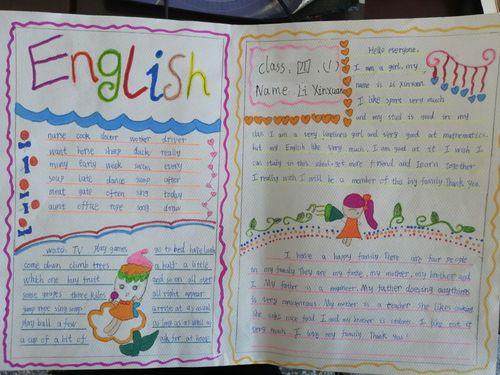 English
nurse cook doctor worker driver
want horse shop duck really
many early week swim every
soup late dance soup after
meat gate often sing today
aunt office rope song draw
watch TV play games
come down climb trees
which one buy fruit
some grapes three kilos
jump rope sing songs
play ball a few
a cup of a bit of
go to bed have lunch
a bult a little
and so on all over
all right appear
arrive at as usual
as long as as well as
ask for at home
Class. 四. (1)
Name Li Xinxuan
Hello everyone,
I am a girl, my
name is Li Xinxuan
I like sport very much
and my stud is good in my
class I am a very loneliness girl and very good at mathematics.
but my English like very much. I am good at it I wish I
can study in this school. get more friend and learn together
I really wish I will be a member of this big family. Thank you.
I have a happy family. There are four people
in my family. They are my father, my mother, my brother and
I. My father is a engineer. My father dressing anything
is very My mother is a teacher. She likes cooking
She cooks nice food. I and my brother is student. I like eat it
very much. I love my family. Thank you!